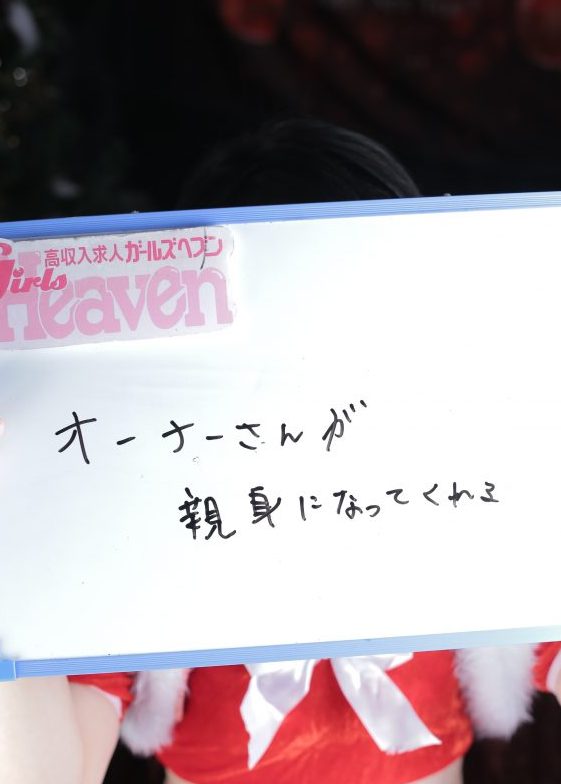 高収入求人ガールズヘブン
Girls
Heaven
オーナーさんが
親身になってくれる